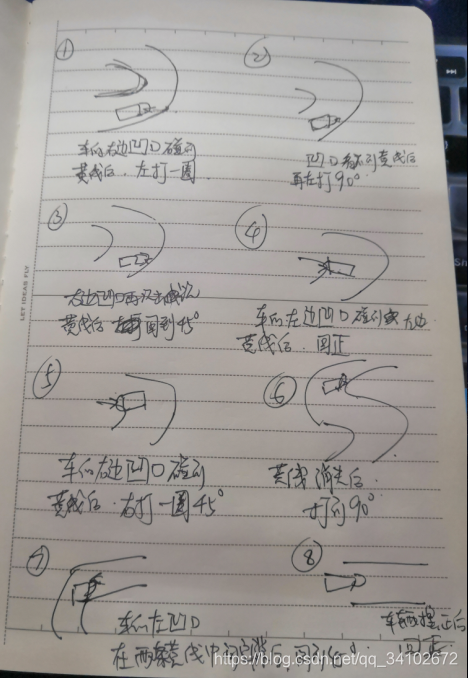 ①
车的右边凹口碰到
黄线后,左打一圈
②
凹口看不到黄线后
再左打90°
③
右边凹口再次
黄线后 回到45°
④
车的左边凹口碰到 左边
黄线后,回正
⑤
车的右边凹口碰到
黄线后,右打一圈45°
⑥
黄线消失后
打到90°
⑦
车的左凹口
在两条黄线中间
⑧
车辆摆正后
回正
LET IDEAS FLY
https://blog.csdn.net/qq_34102672